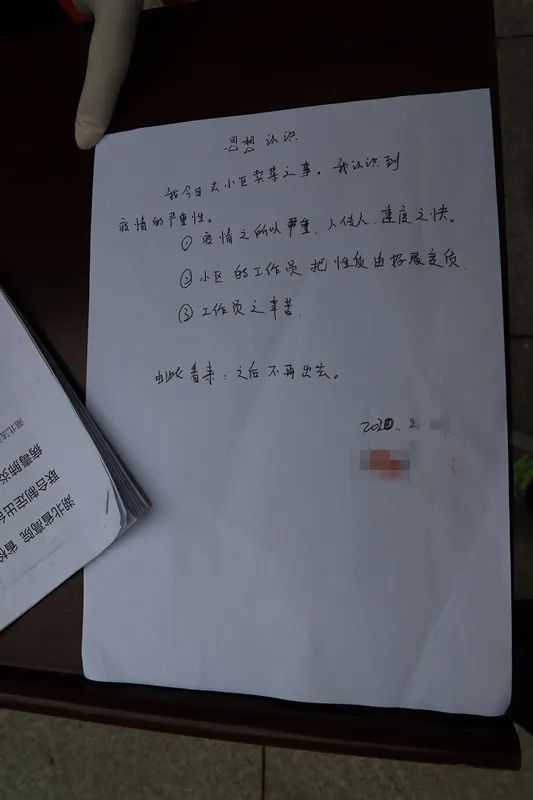 思想认识
我今日去小区卖菜之事。我认识到
疫情的严重性。
① 疫情之所以严重,人传人,速度之快。
② 小区的工作员把性质由好变质.
③ 工作员之辛苦.
由此看来:之后不再出去。
2020.2
湖北省高院 省检
联合制定出台
病毒肺炎
湖北法